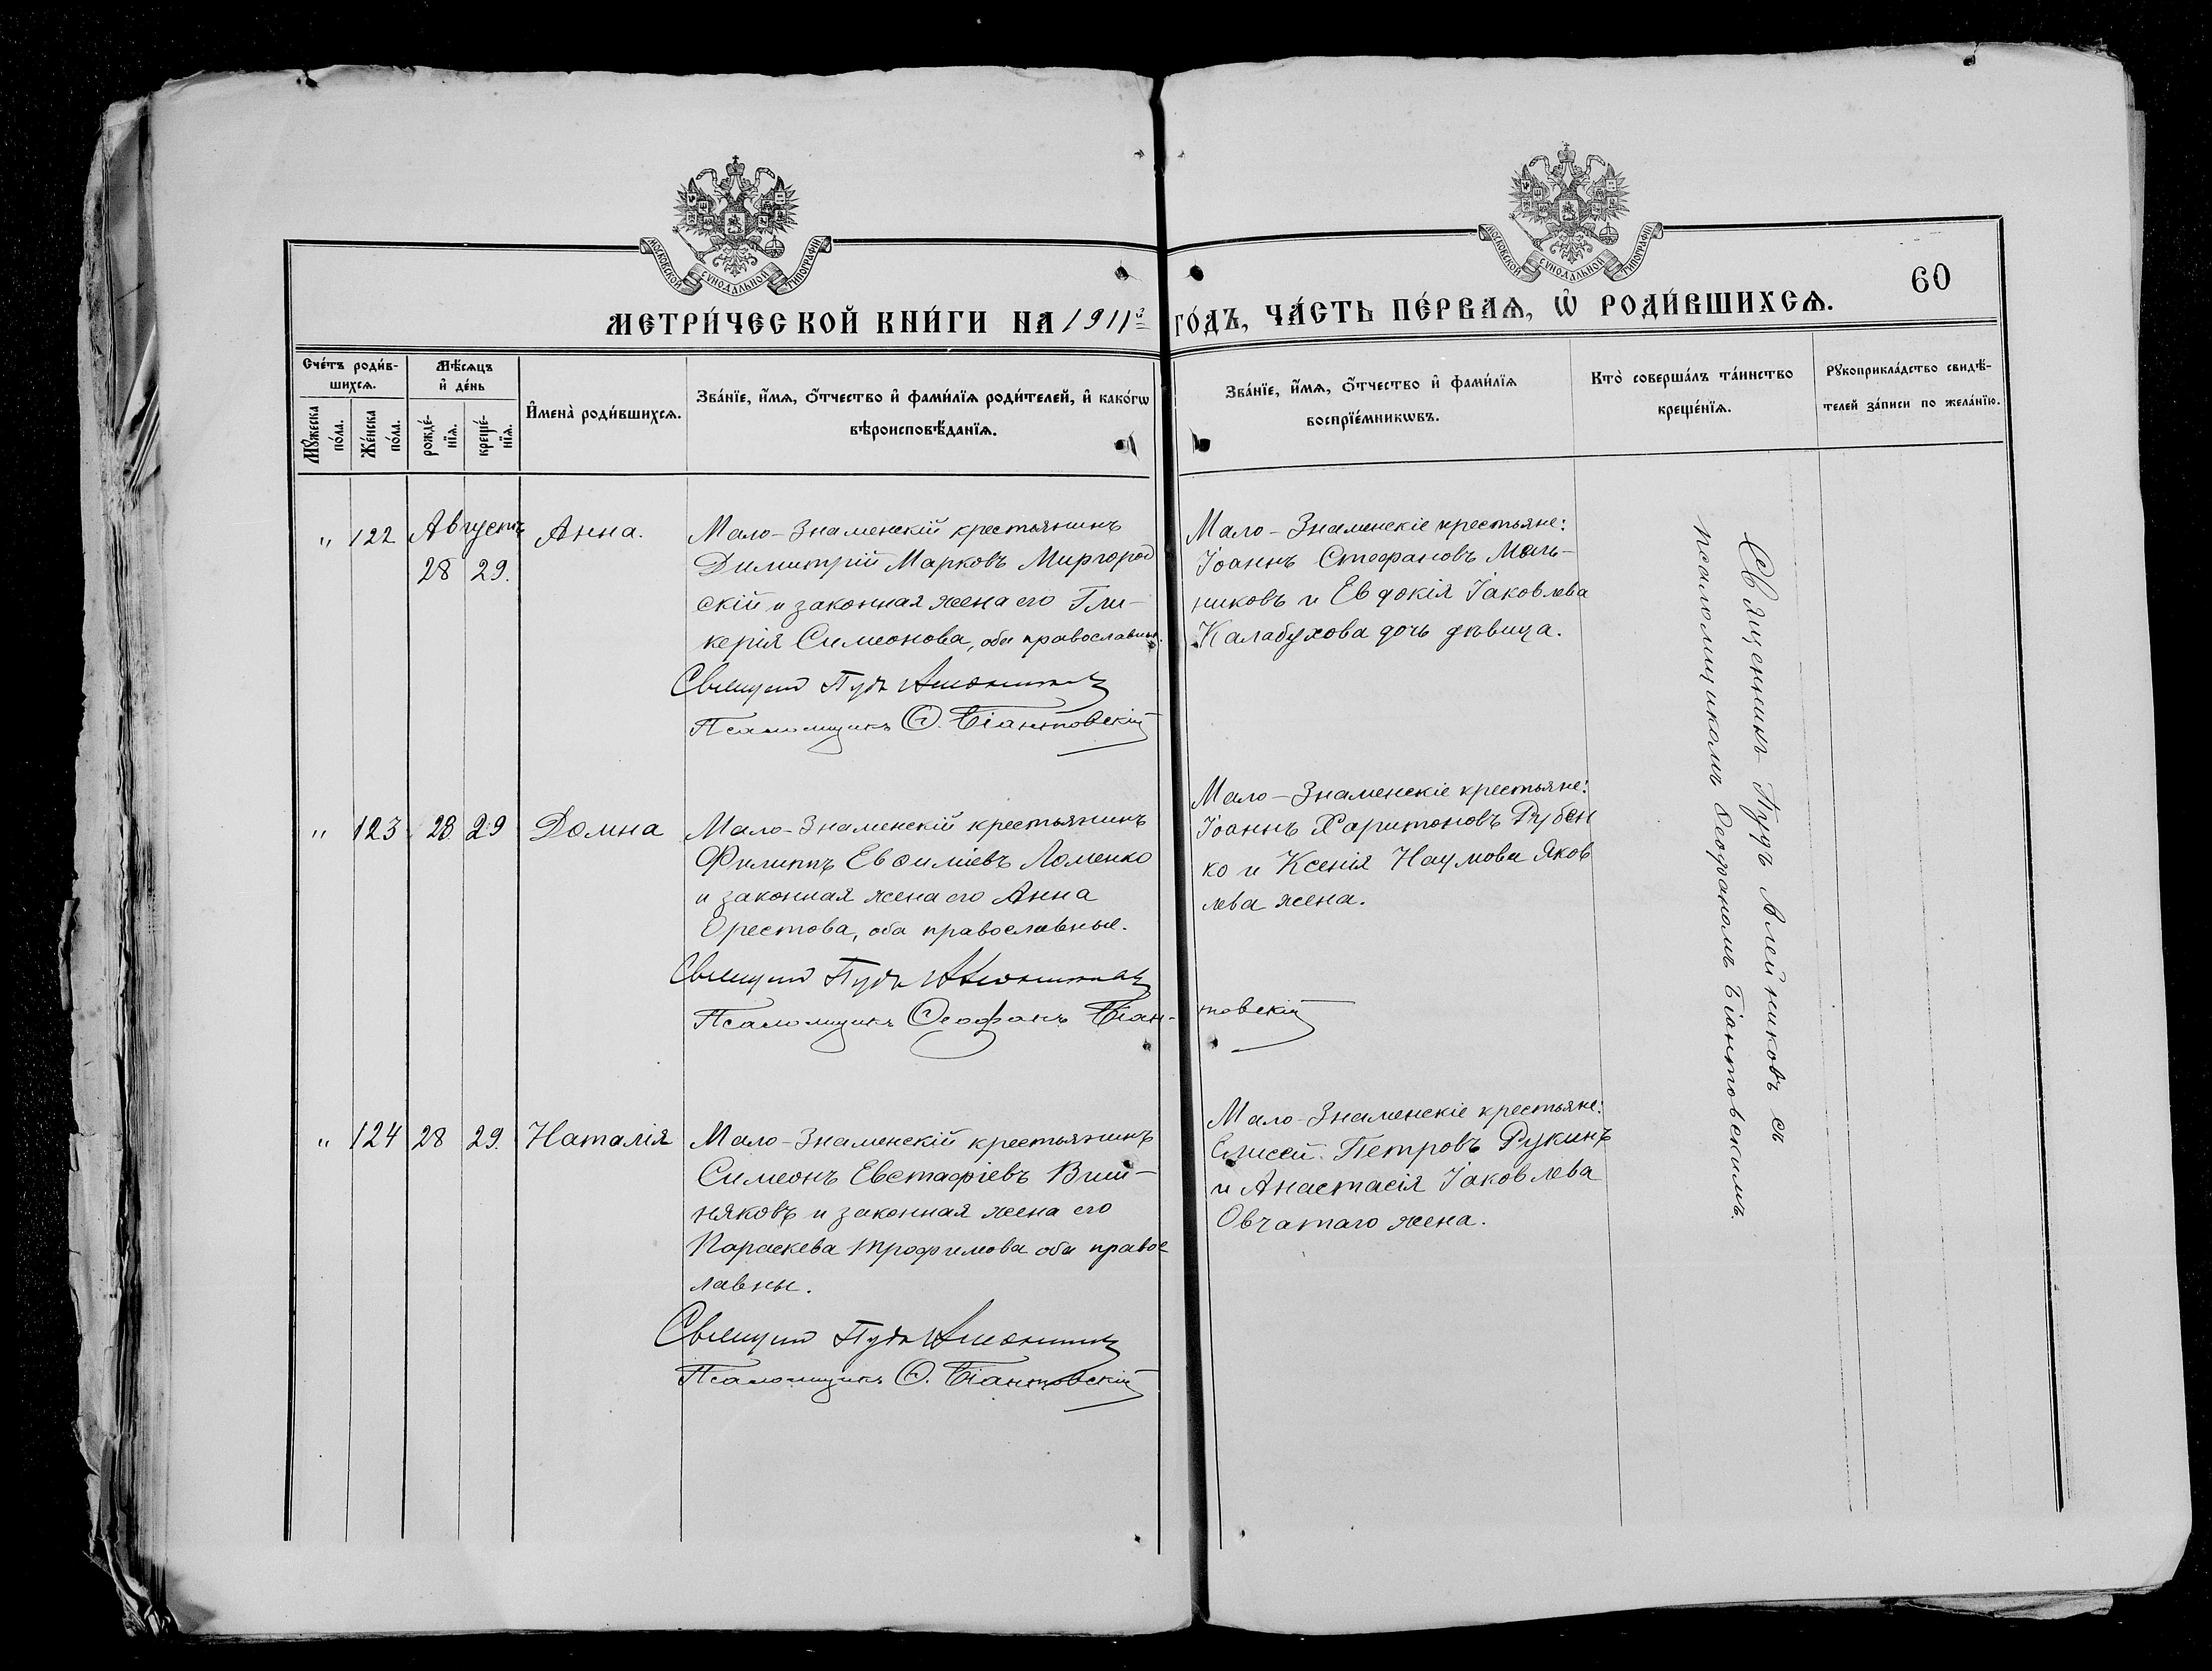 МОСКОВСКОЙ СУНОДАЛЬНОЙ ТИПОГРАФІИ
МОСКОВСКОЙ СУНОДАЛЬНОЙ ТИПОГРАФІИ
60
МЕТРИ́ЧЕСКОЙ КНИ́ГИ НА 1911й ГО́ДЪ, ЧА́СТЬ ПЕ́РВАѦ, Ѡ҆ РОДИ́ВШИХСѦ.
Сче́тъ роди́в-
шихсѧ.
Мꙋжеска
по́ла.
Же́нска
по́ла.
Мѣ́сѧцъ
и҆ де́нь
рожде́-
нїѧ.
креще́-
нїѧ.
И҆мена̀ роди́вшихсѧ.
Зва́нїе, и҆́мѧ, ѻ҆́тчество и҆ фами́лїѧ роди́телей, и҆ како́гѡ
вѣроисповѣ́данїѧ.
Зва́нїе, и҆́мѧ, ѻ҆́тчество и҆ фами́лїѧ
воспрїе́мникѡвъ.
Кто̀ соверша́лъ та́инство
креще́нїѧ.
Рꙋкоприкла́дство свидѣ́-
телей за́писи по жела́нїю.
" 122 Августъ 28 29. Анна.
Мало-Знаменскій крестьянинъ
Димитрій Марковъ Миргород
скій и законная жена его Гли-
керія Симеонова, оба православные.
Священ Пудъ Алейников
Псаломщикъ Ѳ. Біантовскій
Мало-Знаменскіе крестьяне:
Іоаннъ Стефановъ Мель-
никовъ и Евдокія Іаковлева
Калабухова дочь девица.
" 123 28 29 Домна
Мало-Знаменскій крестьянинъ
Филиппъ Евѳиміевъ Ломенко
и законная жена его Анна
Орестова, оба православные.
Священ Пудъ Алейников
Псаломщикъ Ѳеофанъ Біан-
товскій
Мало-Знаменскіе крестьяне:
Іоаннъ Харитоновъ Рубен
ко и Ксенія Наумова Яков
лева жена.
" 124 28 29. Наталія
Мало-Знаменскій крестьянинъ
Симеонъ Евстафіевъ Виш-
няковъ и законная жена его
Параскева Трофимова оба правос
лавны.
Священ Пудъ Алейников
Псаломщикъ Ѳ. Біантовскій
Мало-Знаменскіе крестьяне:
Елисей Петровъ Рукинъ
и Анастасія Іаковлева
Овчатаго жена.
Священникъ Пудъ Алейниковъ съ
псаломщикомъ Ѳеофаномъ Біантовскимъ.